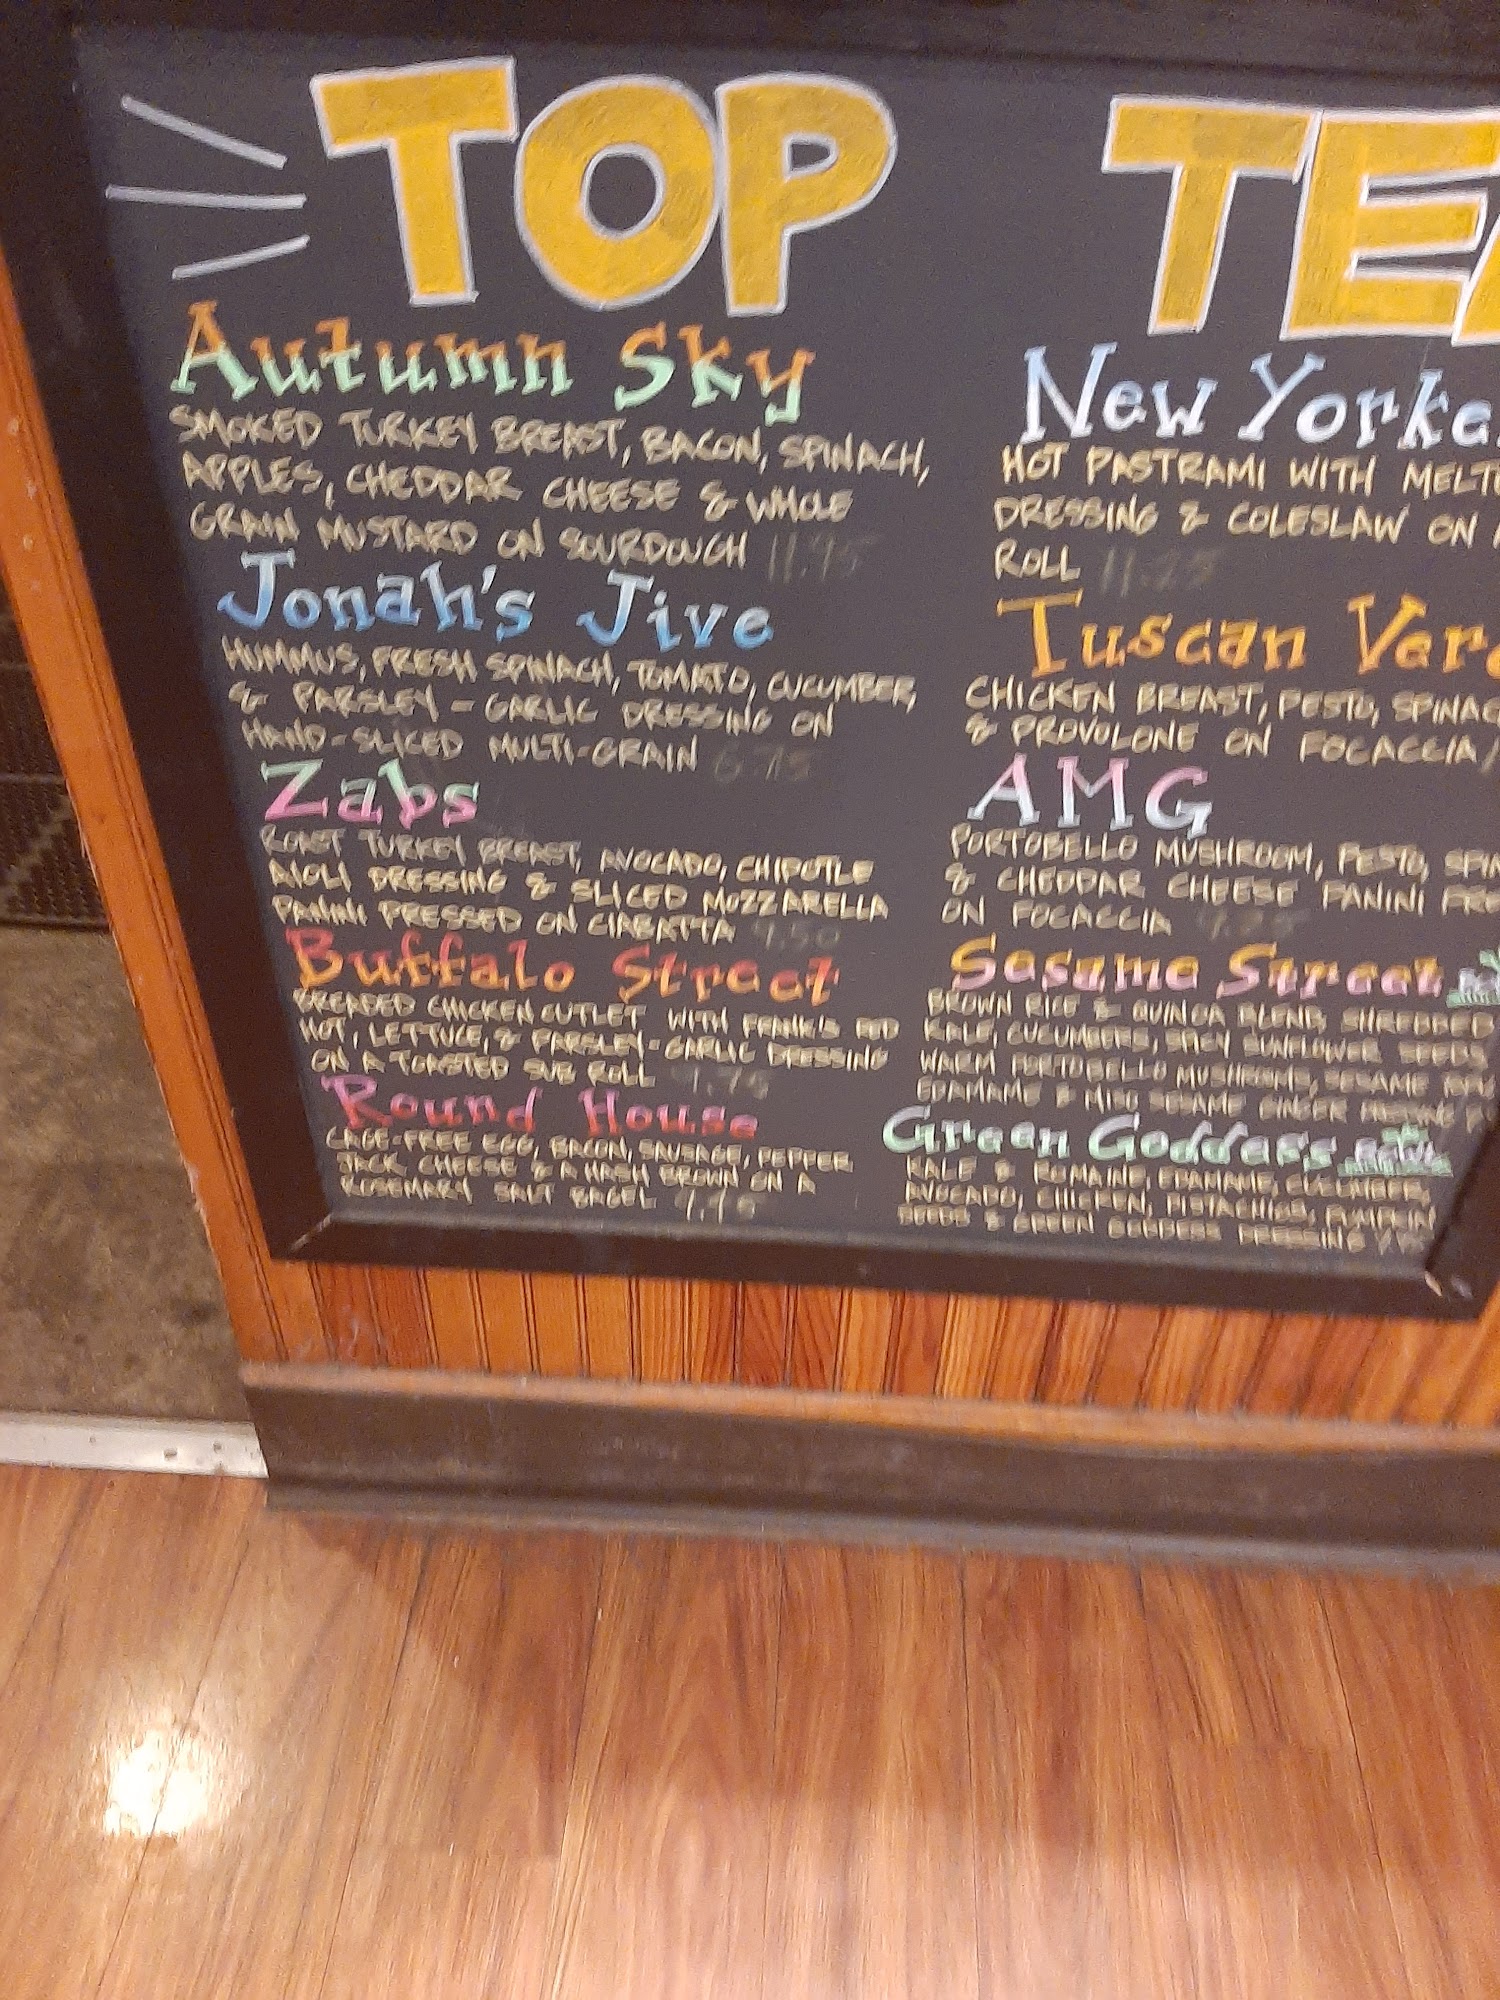 TOP TE
Autumn Sky
SMOKED TURKEY BREAST, BACON, SPINACH,
APPLES, CHEDDAR CHEESE & WHOLE
GRAIN MUSTARD ON SOURDOUGH 11.95
Jonah's Jive
HUMMUS, FRESH SPINACH, TOMATO, CUCUMBER,
& PARSLEY-GARLIC DRESSING ON
HAND-SLICED MULTI-GRAIN
Zabs
ROAST TURKEY BREAST, AVOCADO, CHIPOTLE
AIOLI DRESSING & SLICED MOZZARELLA
PANINI PRESSED ON CIABATTA 9.50
Buffalo Street
BREADED CHICKEN CUTLET WITH FRANK'S RED
HOT, LETTUCE, & PARSLEY-GARLIC DRESSING
ON A TOASTED SUB ROLL
Round House
CAGE-FREE EGG, BACON, SAUSAGE, PEPPER
JACK CHEESE & A HASH BROWN ON A
ROSEMARY SALT BAGEL
New Yorke
HOT PASTRAMI WITH MELT
DRESSING & COLESLAW ON
ROLL 11.25
Tuscan Ver
CHICKEN BREAST, PESTO, SPINAC
& PROVOLONE ON FOCACCIA
AMG
PORTOBELLO MUSHROOM, PESTO, SPIN
& CHEDDAR CHEESE PANINI PRE
ON FOCACCIA 9.25
Sesame Street
BROWN RICE & QUINOA BLEND, SHREDDED
KALE, CUCUMBERS, SPICY SUNFLOWER SEEDS,
WARM PORTOBELLO MUSHROOMS, SESAME
EDAMAME & MISO SESAME GINGER DRESSING
Green Goddess BOWL
KALE & ROMAINE, EDAMAME, CUCUMBER,
AVOCADO, CHICKEN, PISTACHIOS, PUMPKIN
SEEDS & GREEN GODDESS DRESSING